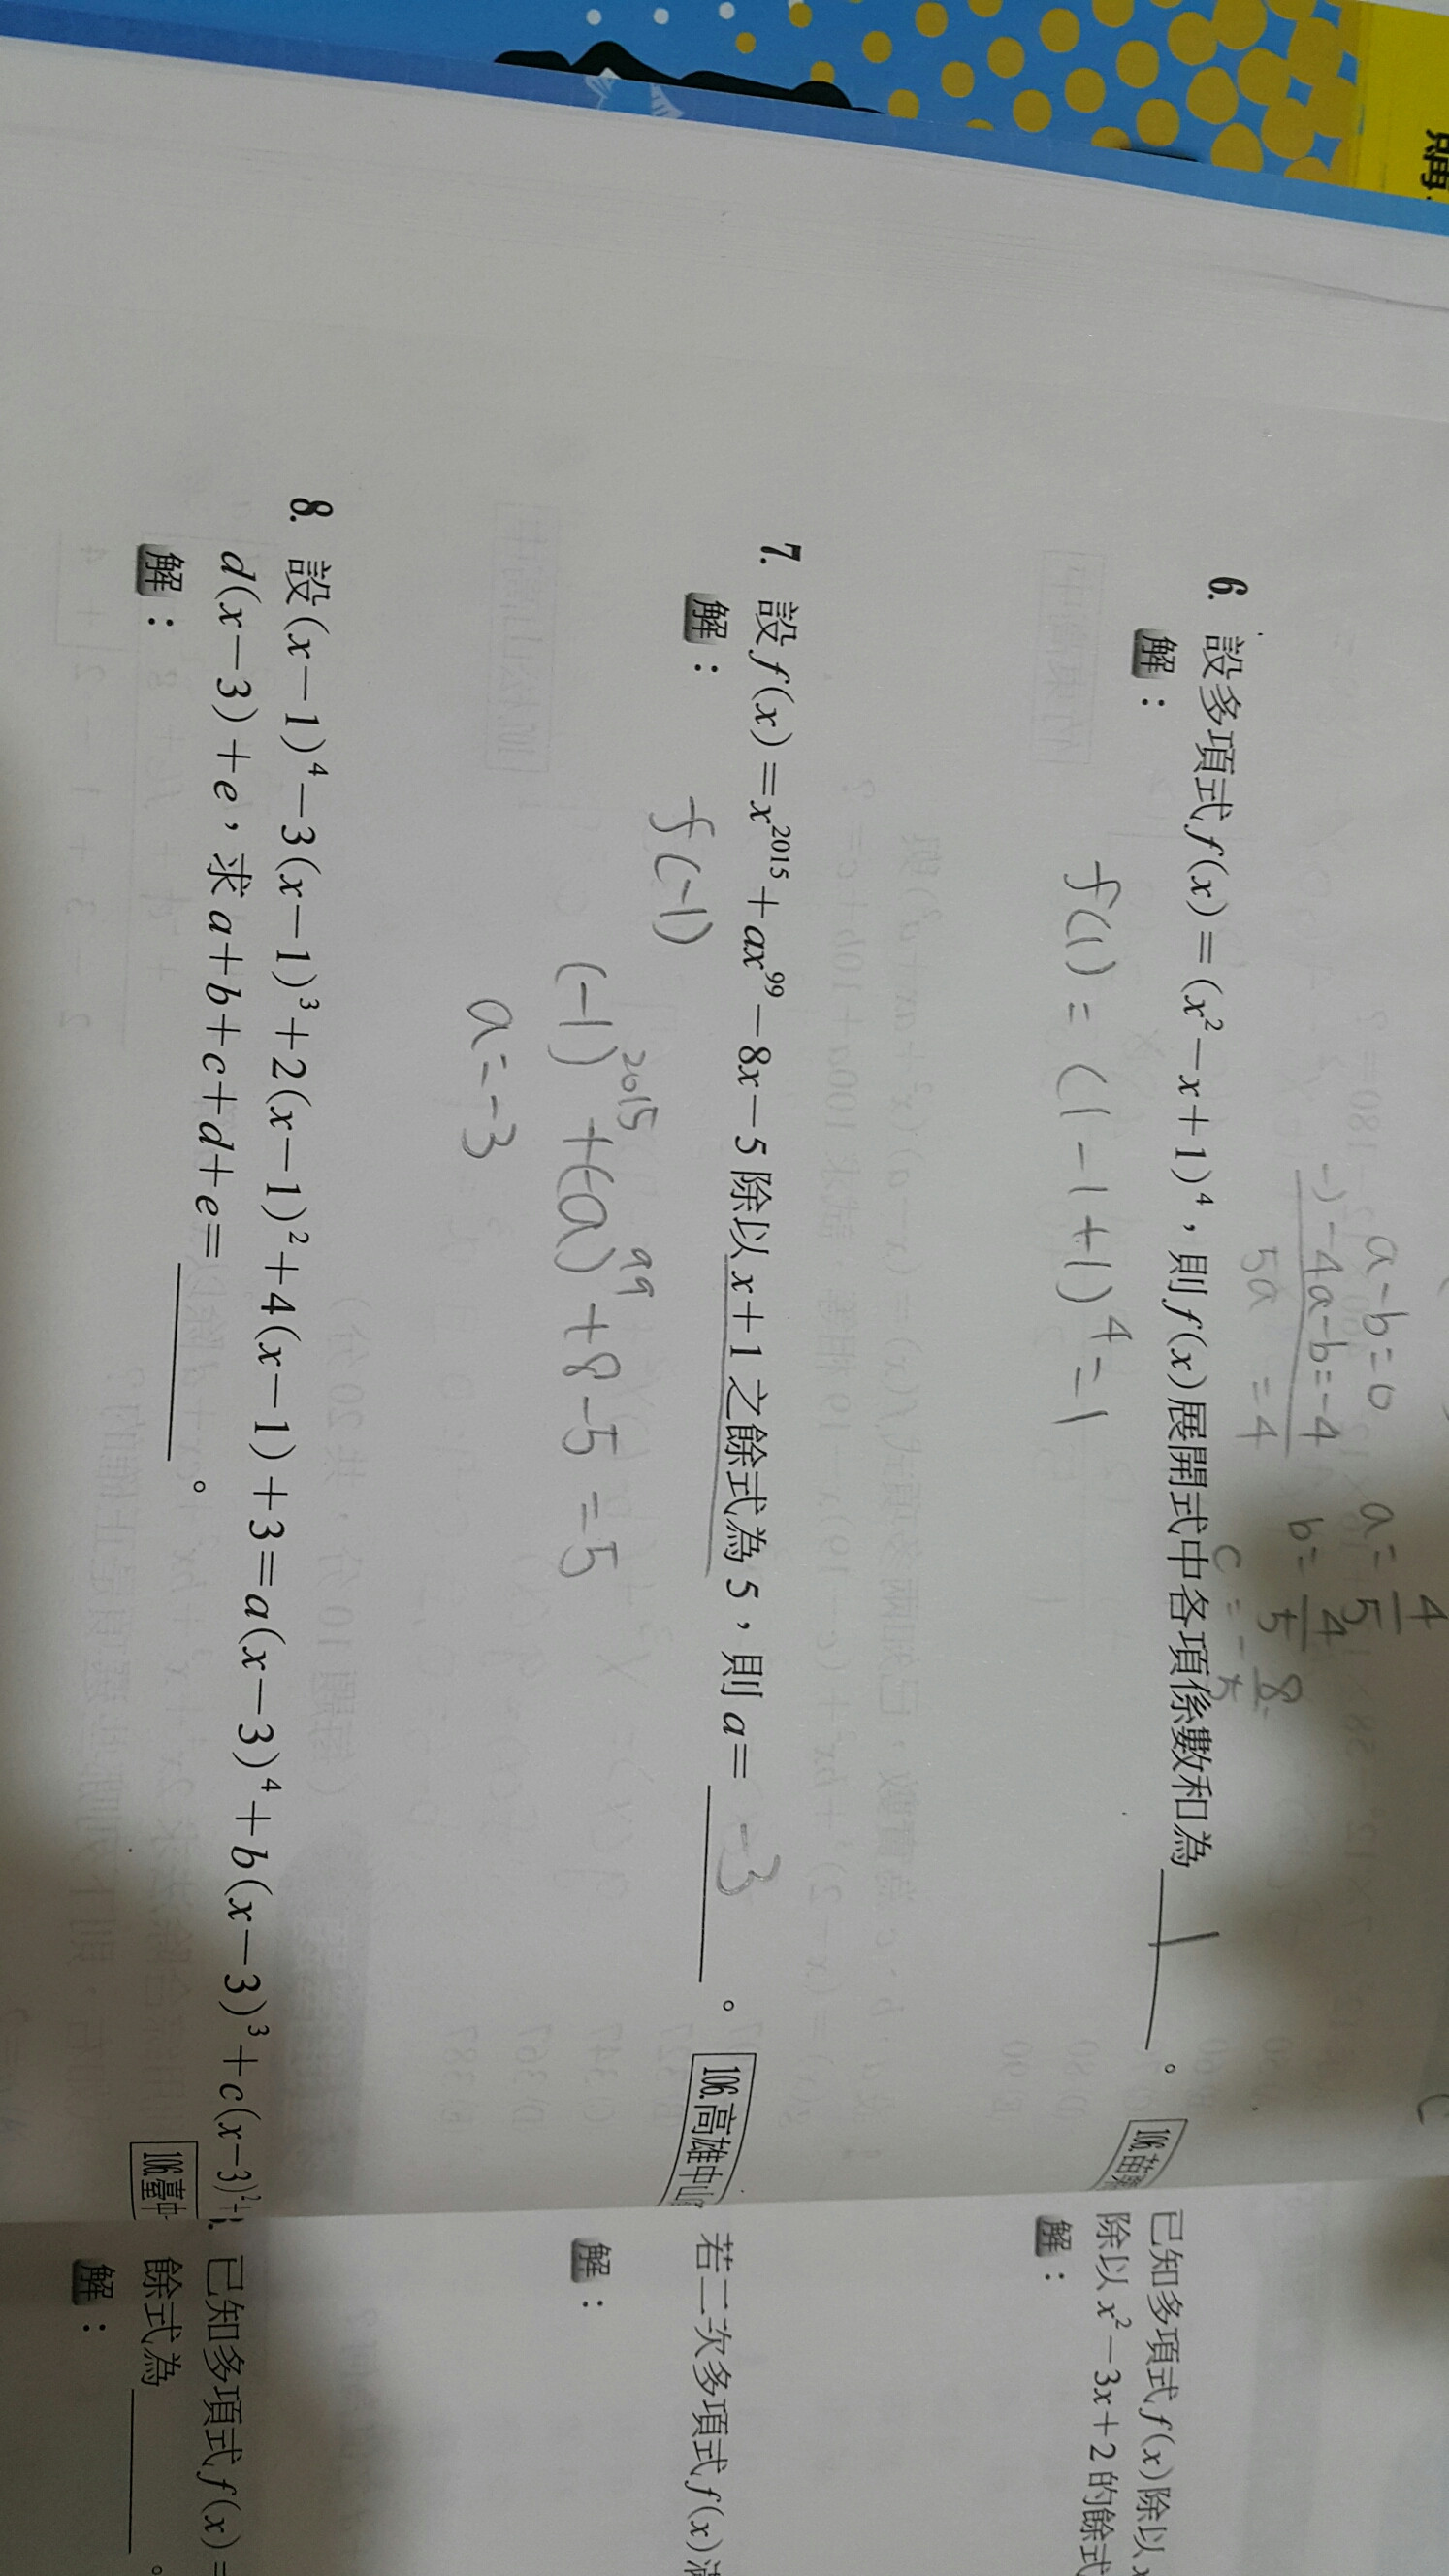 a-b=0
-) -4a-b=-4
5a =4
a=4/5
b=4/5
c=-8/5
6. 設多項式 f(x)=(x²-x+1)⁴,則 f(x) 展開式中各項係數和為 1 。
解:
f(1) = (1-1+1)⁴=1
7. 設 f(x)=x²⁰¹⁵+ax⁹⁹-8x-5 除以 x+1 之餘式為 5,則 a= -3 。 106.高雄中山
解:
f(-1)
(-1)²⁰¹⁵+(-a)⁹⁹+8-5=5
a=-3
8. 設 (x-1)⁴-3(x-1)³+2(x-1)²+4(x-1)+3=a(x-3)⁴+b(x-3)³+c(x-3)²+
d(x-3)+e,求 a+b+c+d+e= 。 106.臺中
解:
已知多項式 f(x) 除以
除以 x²-3x+2 的餘式
解:
若二次多項式 f(x)
解:
已知多項式 f(x)=
餘式為 。
解: